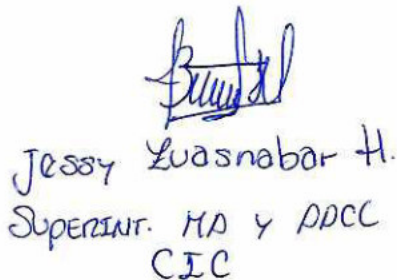 Jessy Luasnabar H.
SUPERINT. MA Y AACC
CIC